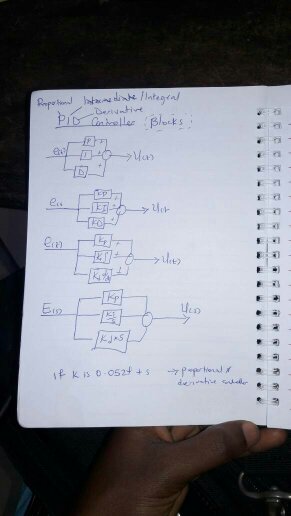 Proportional Intermediate/Integral
Derivative
PID Controller Blocks
P +
e(t) I + U(t)
D +
KP +
e(t) KI + U(t
KD +
Kp +
e(t) + U(t)
+
Kp
E(s) U(s)
Kd*S
if K is 0.052f + s → proportional &
derivative controller